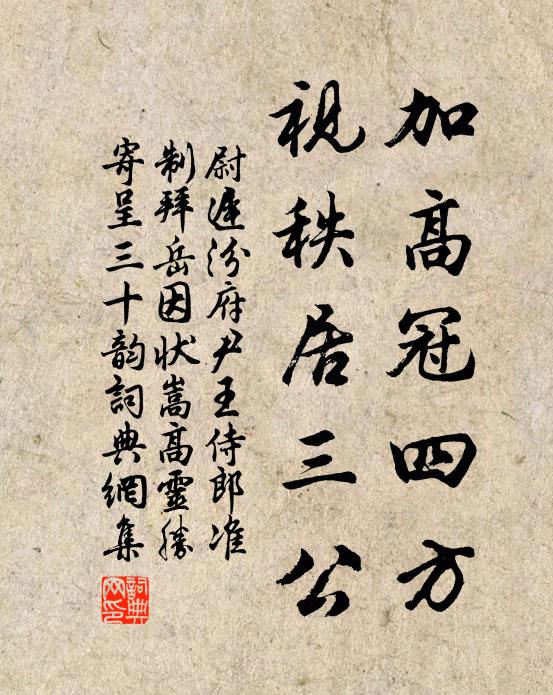 加高冠四方
視秩居三公
尉遲汾府尹王侍郎准
制拜岳因狀嵩高靈勝
寄呈三十韵詞典網集
詞典網印